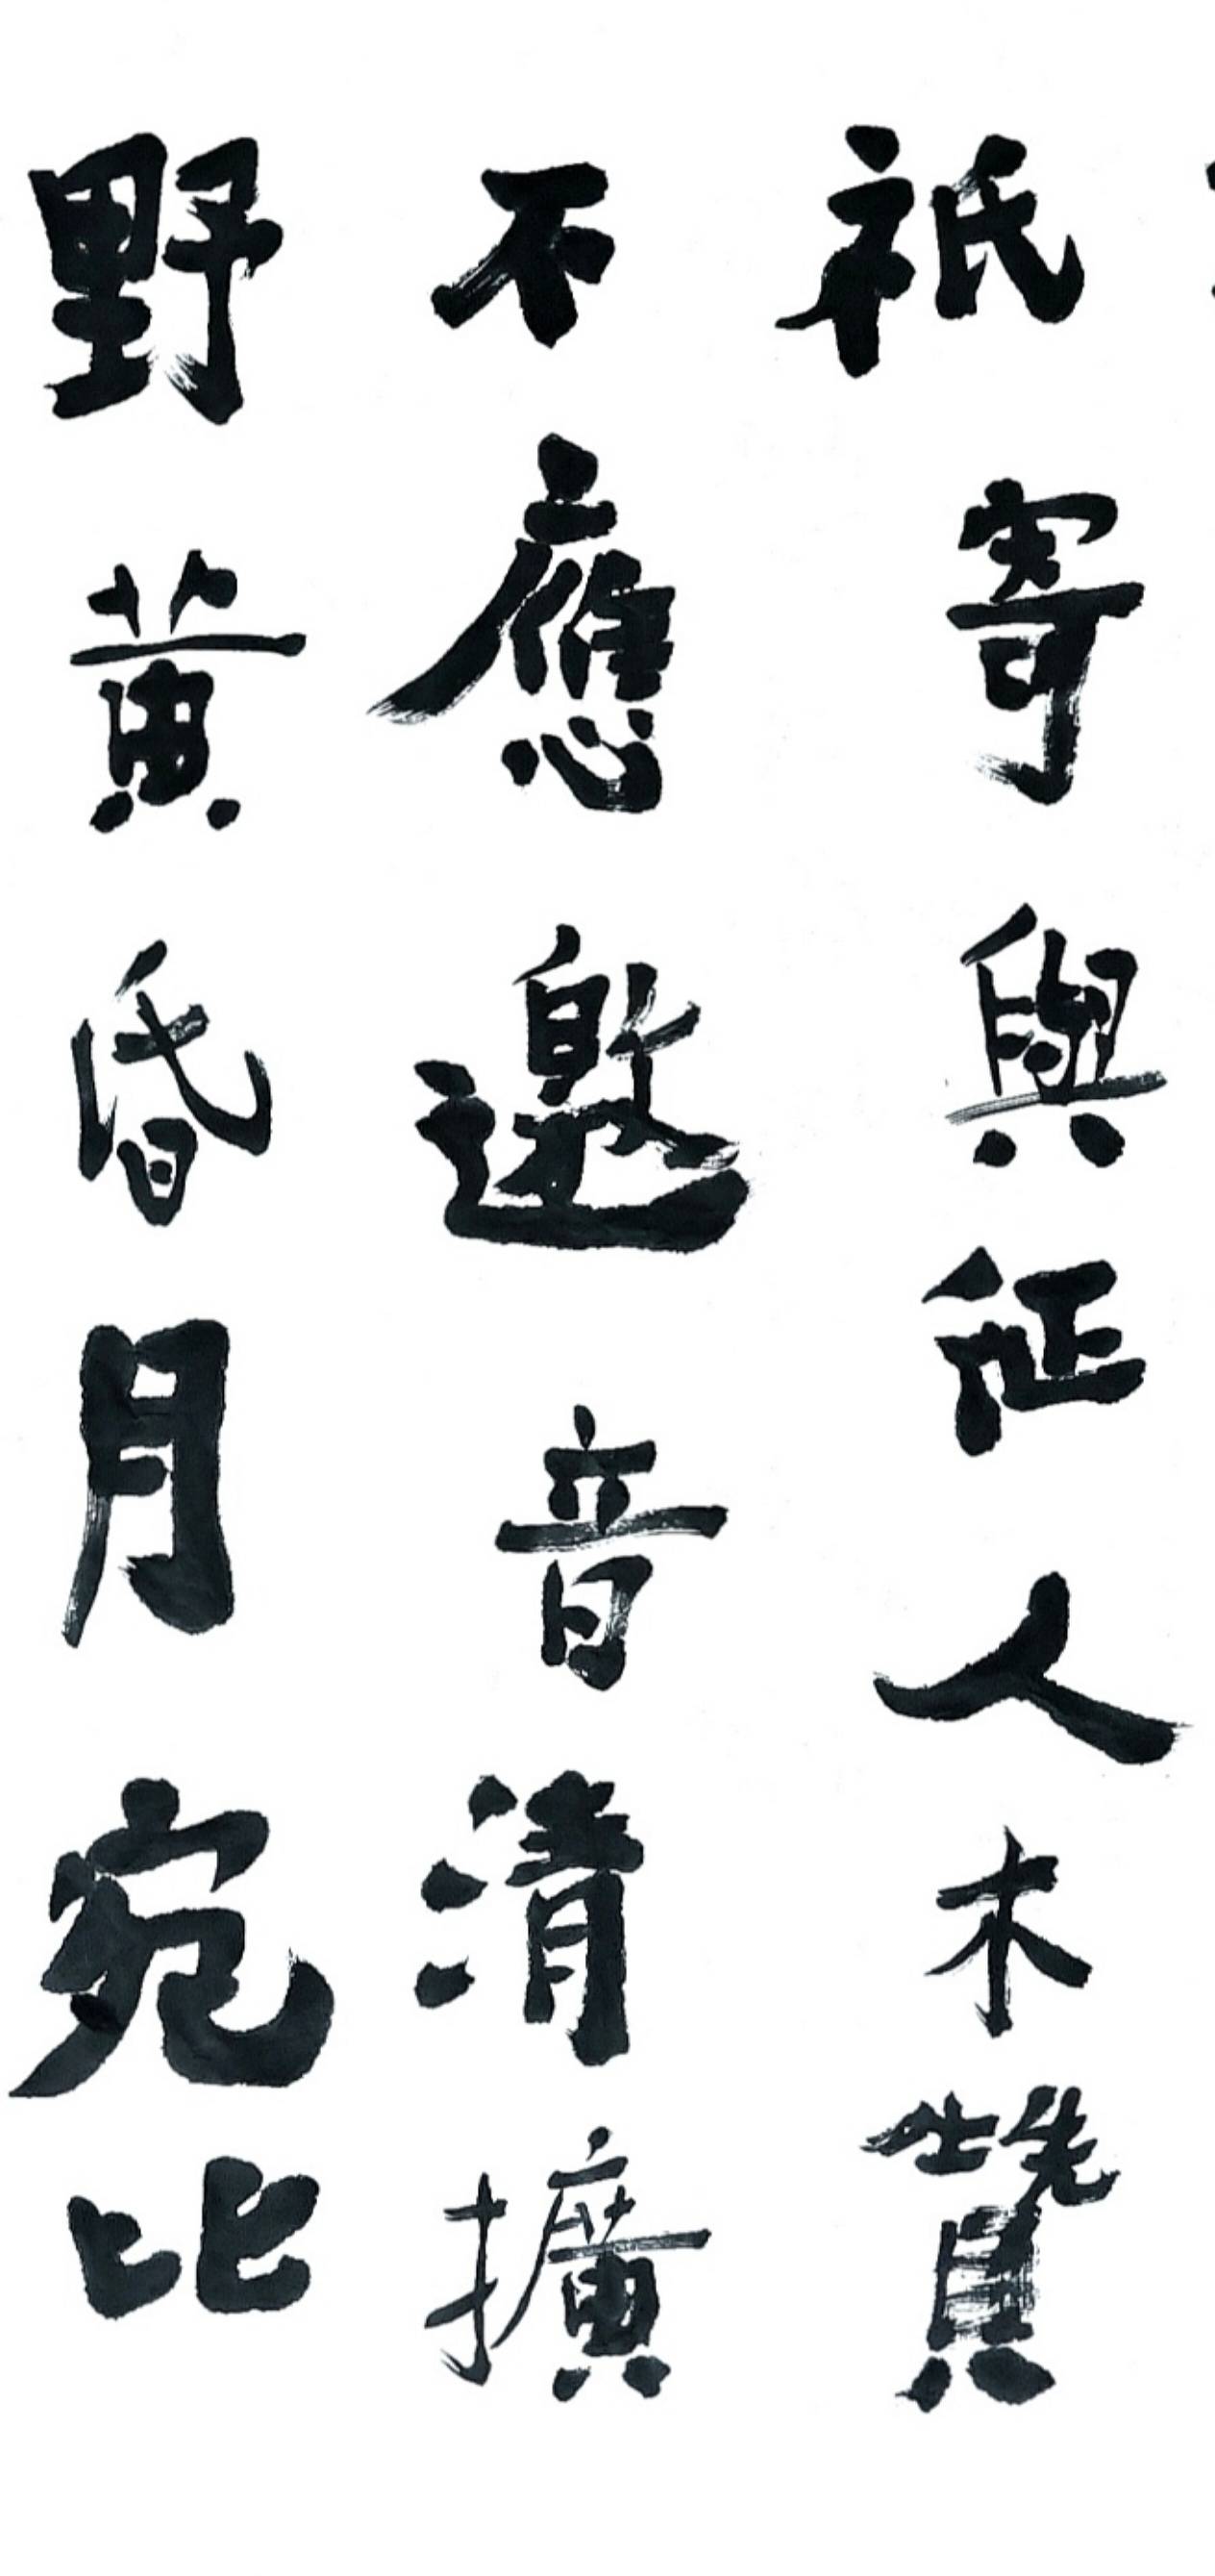 祇寄與征人木贊
不應邀音清擴
野黃昏月宛比